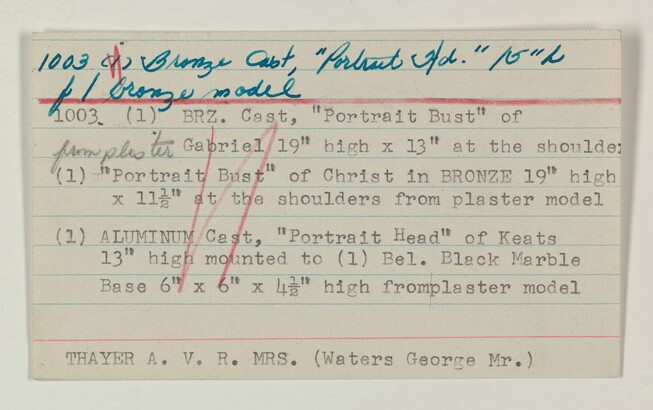 1003 (1) Bronze Cast, "Portrait Hd." 15" h
f/ bronze model
1003. (1) BRZ. Cast, "Portrait Bust" of
from plaster Gabriel 19" high x 13" at the shoulder
(1) "Portrait Bust" of Christ in BRONZE 19" high
x 11½" at the shoulders from plaster model
(1) ALUMINUM Cast, "Portrait Head" of Keats
13" high mounted to (1) Bel. Black Marble
Base 6" x 6" x 4½" high from plaster model
THAYER A. V. R. MRS. (Waters George Mr.)